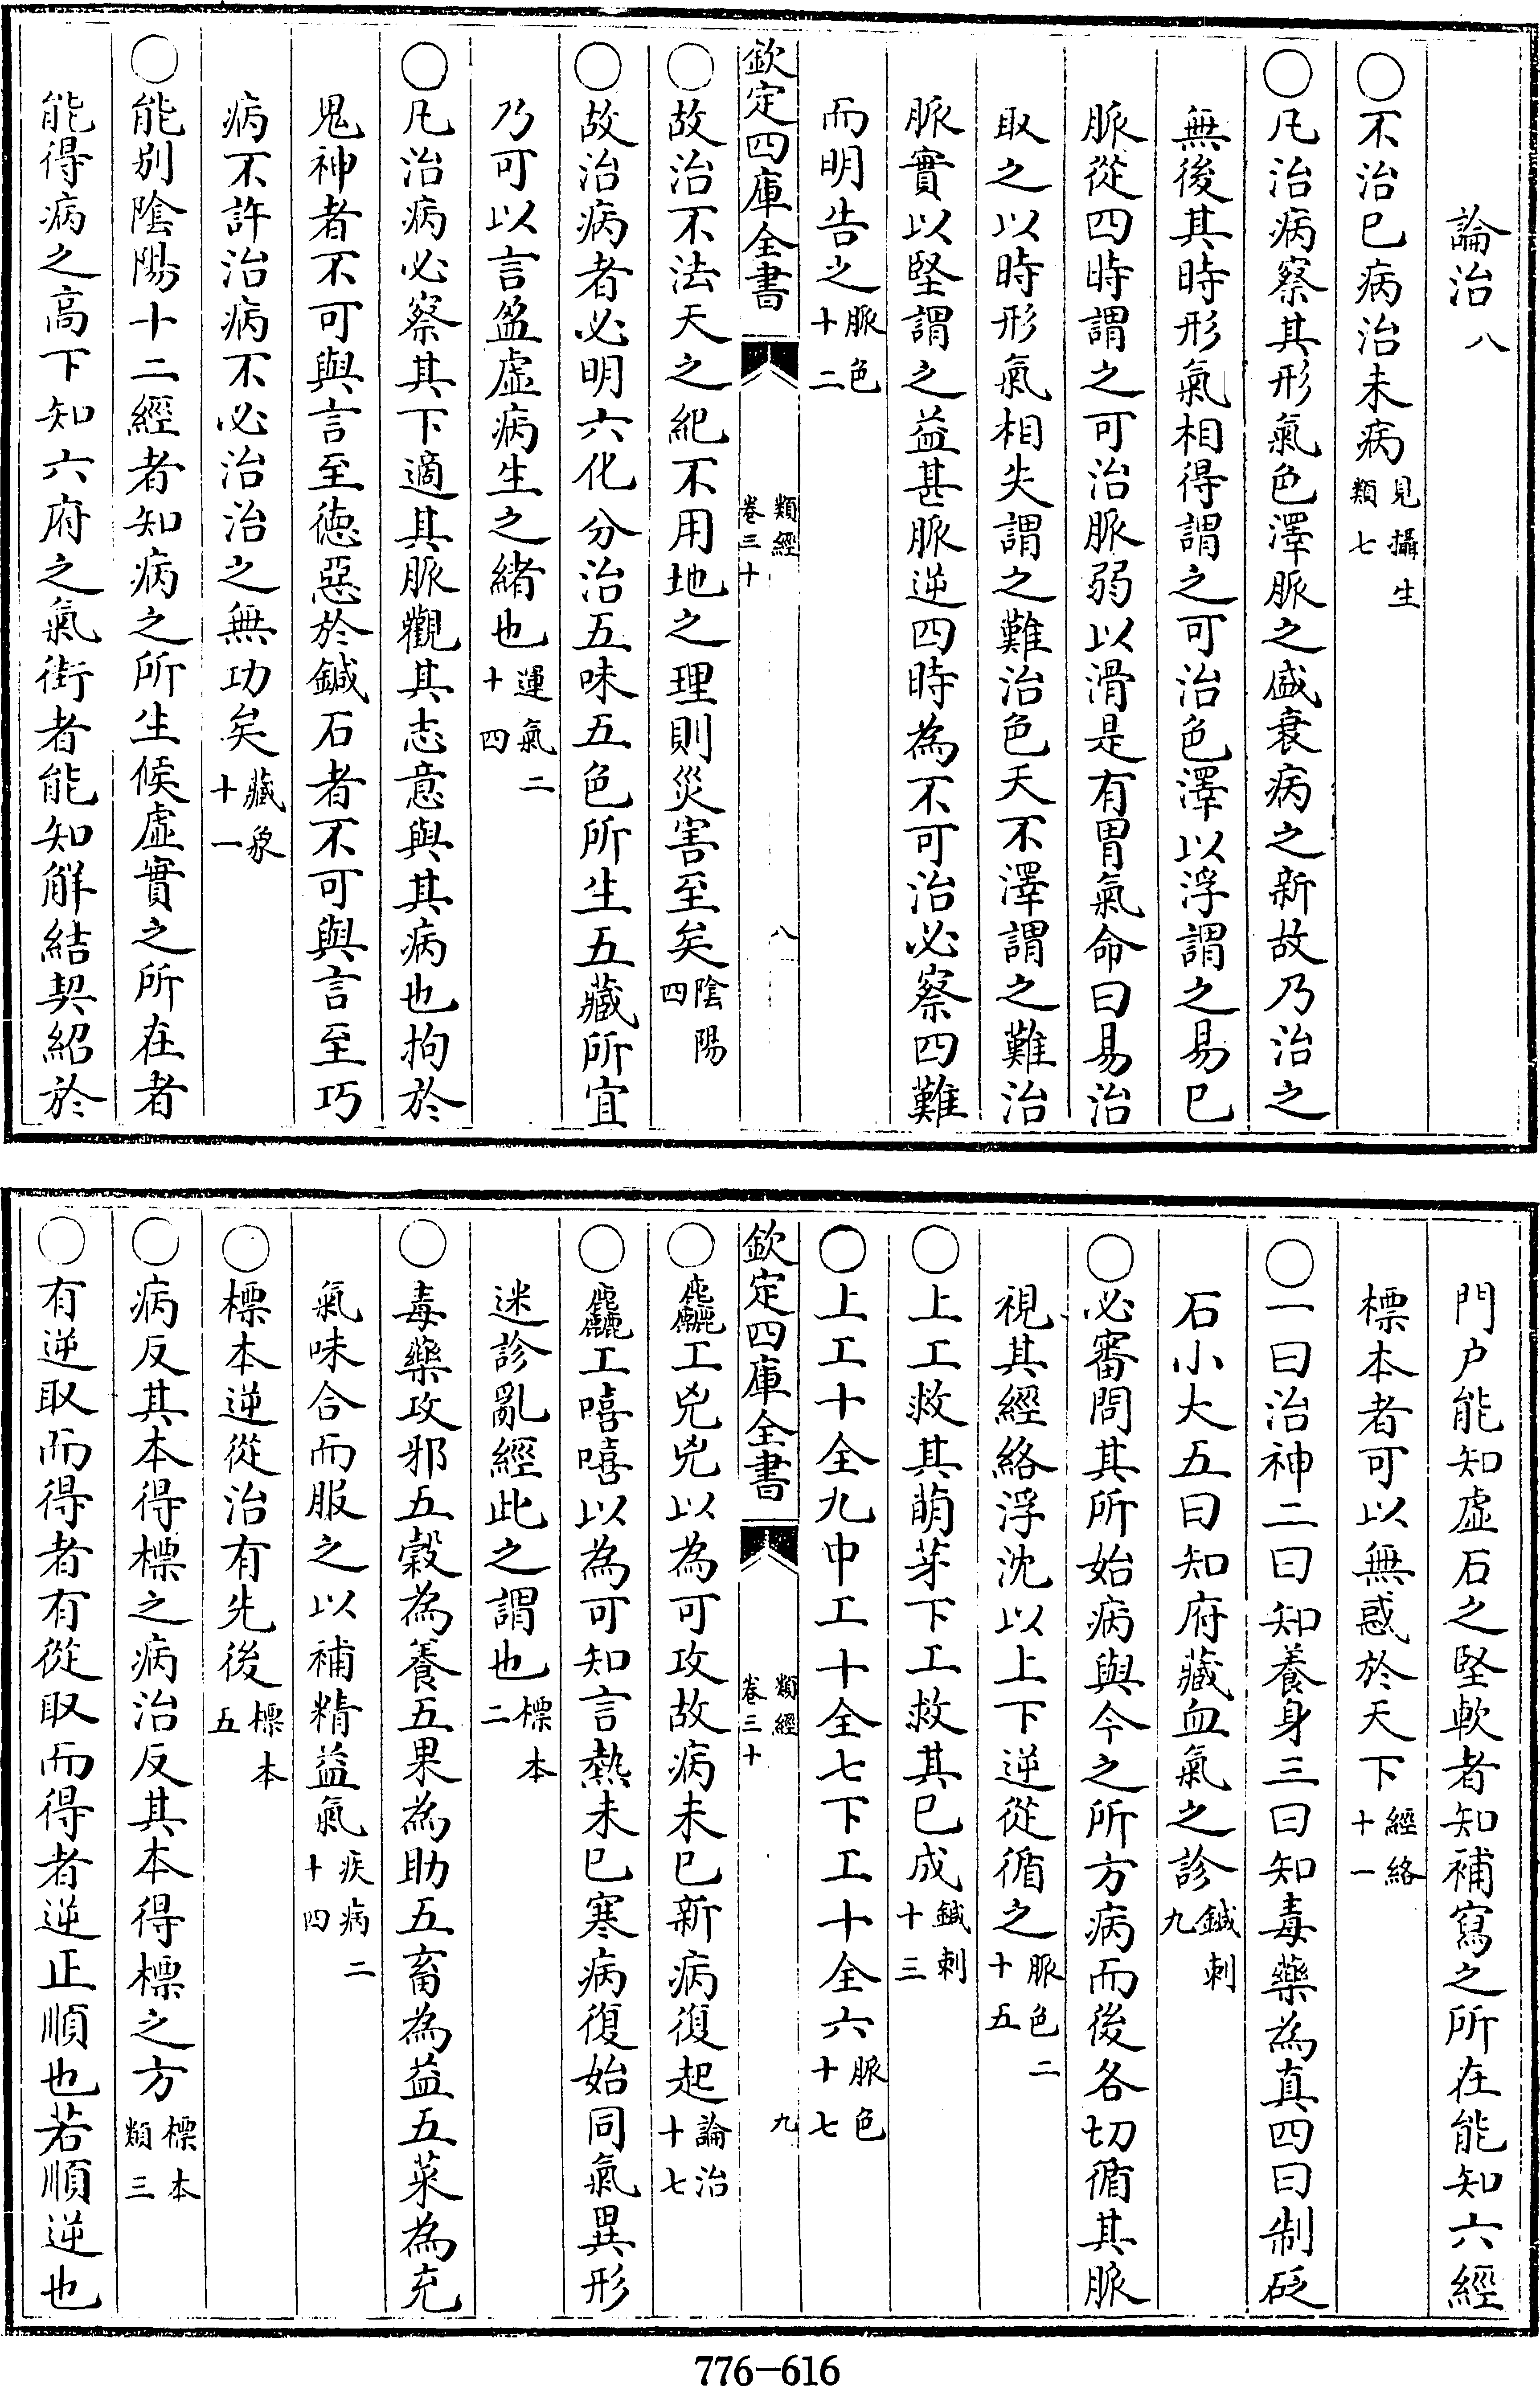 論治八
○不治已病治未病見攝生類七
○凡治病察其形氣色澤脈之盛衰病之新故乃治之
無後其時形氣相得謂之可治色澤以浮謂之易已
脈從四時謂之可治脈弱以滑是有胃氣命曰易治
取之以時形氣相失謂之難治色夭不澤謂之難治
脈實以堅謂之益甚脈逆四時為不可治必察四難
而明告之脈色十二
欽定四庫全書 類經卷三十 八
○故治不法天之紀不用地之理則災害至矣陰陽四
○故治病者必明六化分治五味五色所生五藏所宜
乃可以言盈虛病生之緒也運氣二十四
○凡治病必察其下適其脈觀其志意與其病也拘於
鬼神者不可與言至德惡於鍼石者不可與言至巧
病不許治病不必治治之無功矣藏象十一
○能別陰陽十二經者知病之所生候虛實之所在者
能得病之高下知六府之氣街者能知解結契紹於
門户能知虛石之堅軟者知補寫之所在能知六經
標本者可以無惑於天下經絡十一
○一曰治神二曰知養身三曰知毒藥為真四曰制砭
石小大五曰知府藏血氣之診鍼刺九
○必審問其所始病與今之所方病而後各切循其脈
視其經絡浮沈以上下逆從循之脈色二十五
○上工救其萌芽下工救其已成鍼刺十三
○上工十全九中工十全七下工十全六脈色十七
欽定四庫全書 類經卷三十 九
○麤工兇兇以為可攻故病未已新病復起論治十七
○麤工嘻嘻以為可知言熱未已寒病復始同氣異形
迷診亂經此之謂也標本二
○毒藥攻邪五穀為養五果為助五畜為益五菜為充
氣味合而服之以補精益氣疾病二十四
○標本逆從治有先後標本五
○病反其本得標之病治反其本得標之方標本類三
○有逆取而得者有從取而得者逆正順也若順逆也
776-616